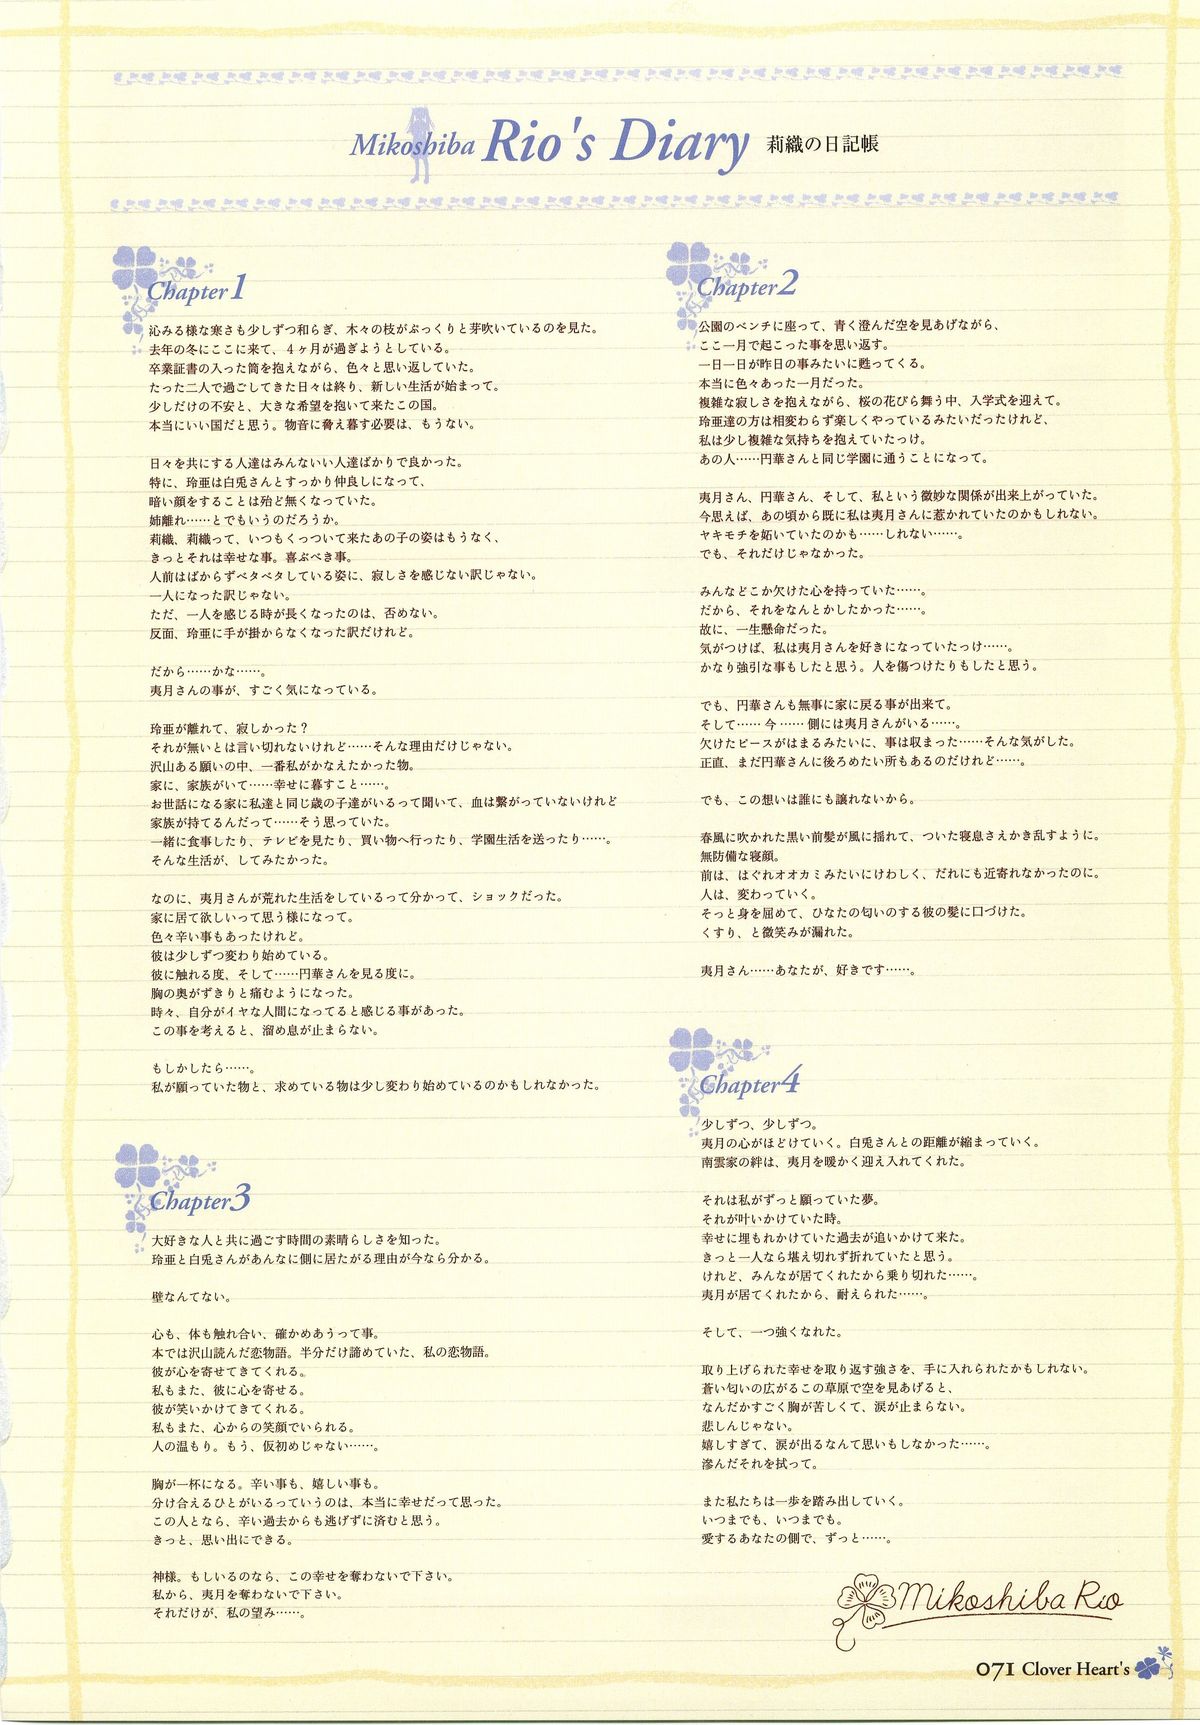 Mikoshiba Rio's Diary 莉織の日記帳
Chapter1
沁みる様な寒さも少しずつ和らぎ、木々の枝がぷっくりと芽吹いているのを見た。
去年の冬にここに来て、４ヶ月が過ぎようとしている。
卒業証書の入った筒を抱えながら、色々と思い返していた。
たった二人で過ごしてきた日々は終り、新しい生活が始まって。
少しだけの不安と、大きな希望を抱いて来たこの国。
本当にいい国だと思う。物音に脅え暮す必要は、もうない。
日々を共にする人達はみんないい人達ばかりで良かった。
特に、玲亜は白兎さんとすっかり仲良しになって、
暗い顔をすることは殆ど無くなっていた。
姉離れ……とでもいうのだろうか。
莉織、莉織って、いつもくっついて来たあの子の姿はもうなく、
きっとそれは幸せな事。喜ぶべき事。
人前はばからずベタベタしている姿に、寂しさを感じない訳じゃない。
一人になった訳じゃない。
ただ、一人を感じる時が長くなったのは、否めない。
反面、玲亜に手が掛からなくなった訳だけれど。
だから……かな……。
夷月さんの事が、すごく気になっている。
玲亜が離れて、寂しかった？
それが無いとは言い切れないけれど……そんな理由だけじゃない。
沢山ある願いの中、一番私がかなえたかった物。
家に、家族がいて……幸せに暮すこと……。
お世話になる家に私達と同じ歳の子達がいるって聞いて、血は繋がっていないけれど
家族が持てるんだって……そう思っていた。
一緒に食事したり、テレビを見たり、買い物へ行ったり、学園生活を送ったり……。
そんな生活が、してみたかった。
なのに、夷月さんが荒れた生活をしているって分かって、ショックだった。
家に居て欲しいって思う様になって。
色々辛い事もあったけれど。
彼は少しずつ変わり始めている。
彼に触れる度、そして……円華さんを見る度に。
胸の奥がずきりと痛むようになった。
時々、自分がイヤな人間になってると感じる事があった。
この事を考えると、溜め息が止まらない。
もしかしたら……。
私が願っていた物と、求めている物は少し変わり始めているのかもしれなかった。
Chapter2
公園のベンチに座って、青く澄んだ空を見あげながら、
ここ一月で起こった事を思い返す。
一日一日が昨日の事みたいに甦ってくる。
本当に色々あった一月だった。
複雑な寂しさを抱えながら、桜の花びら舞う中、入学式を迎えて。
玲亜達の方は相変わらず楽しくやっているみたいだったけれど、
私は少し複雑な気持ちを抱えていたっけ。
あの人……円華さんと同じ学園に通うことになって。
夷月さん、円華さん、そして、私という微妙な関係が出来上がっていた。
今思えば、あの頃から既に私は夷月さんに惹かれていたのかもしれない。
ヤキモチを妬いていたのかも……しれない……。
でも、それだけじゃなかった。
みんなどこか欠けた心を持っていた……。
だから、それをなんとかしたかった……。
故に、一生懸命だった。
気がつけば、私は夷月さんを好きになっていたっけ……。
かなり強引な事もしたと思う。人を傷つけたりもしたと思う。
でも、円華さんも無事に家に戻る事が出来て。
そして……今……側には夷月さんがいる……。
欠けたピースがはまるみたいに、事は収まった……そんな気がした。
正直、まだ円華さんに後ろめたい所もあるのだけれど……。
でも、この想いは誰にも譲れないから。
春風に吹かれた黒い前髪が風に揺れて、ついた寝息さえかき乱すように。
無防備な寝顔。
前は、はぐれオオカミみたいにけわしく、だれにも近寄れなかったのに。
人は、変わっていく。
そっと身を屈めて、ひなたの匂いのする彼の髪に口づけた。
くすり、と微笑みが漏れた。
夷月さん……あなたが、好きです……。
Chapter3
大好きな人と共に過ごす時間の素晴らしさを知った。
玲亜と白兎さんがあんなに側に居たがる理由が今なら分かる。
壁なんてない。
心も、体も触れ合い、確かめあうって事。
本では沢山読んだ恋物語。半分だけ諦めていた、私の恋物語。
彼が心を寄せてきてくれる。
私もまた、彼に心を寄せる。
彼が笑いかけてきてくれる。
私もまた、心からの笑顔でいられる。
人の温もり。もう、仮初めじゃない……。
胸が一杯になる。辛い事も、嬉しい事も。
分け合えるひとがいるっていうのは、本当に幸せだって思った。
この人となら、辛い過去からも逃げずに済むと思う。
きっと、思い出にできる。
神様。もしいるのなら、この幸せを奪わないで下さい。
私から、夷月を奪わないで下さい。
それだけが、私の望み……。
Chapter4
少しずつ、少しずつ。
夷月の心がほどけていく。白兎さんとの距離が縮まっていく。
南雲家の絆は、夷月を暖かく迎え入れてくれた。
それは私がずっと願っていた夢。
それが叶いかけていた時。
幸せに埋もれかけていた過去が追いかけて来た。
きっと一人なら堪え切れず折れていたと思う。
けれど、みんなが居てくれたから乗り切れた……。
夷月が居てくれたから、耐えられた……。
そして、一つ強くなれた。
取り上げられた幸せを取り返す強さを、手に入れられたかもしれない。
蒼い匂いの広がるこの草原で空を見あげると、
なんだかすごく胸が苦しくて、涙が止まらない。
悲しんじゃない。
嬉しすぎて、涙が出るなんて思いもしなかった……。
滲んだそれを拭って。
また私たちは一歩を踏み出していく。
いつまでも、いつまでも。
愛するあなたの側で、ずっと……。
Mikoshiba Rio
071 Clover Heart's